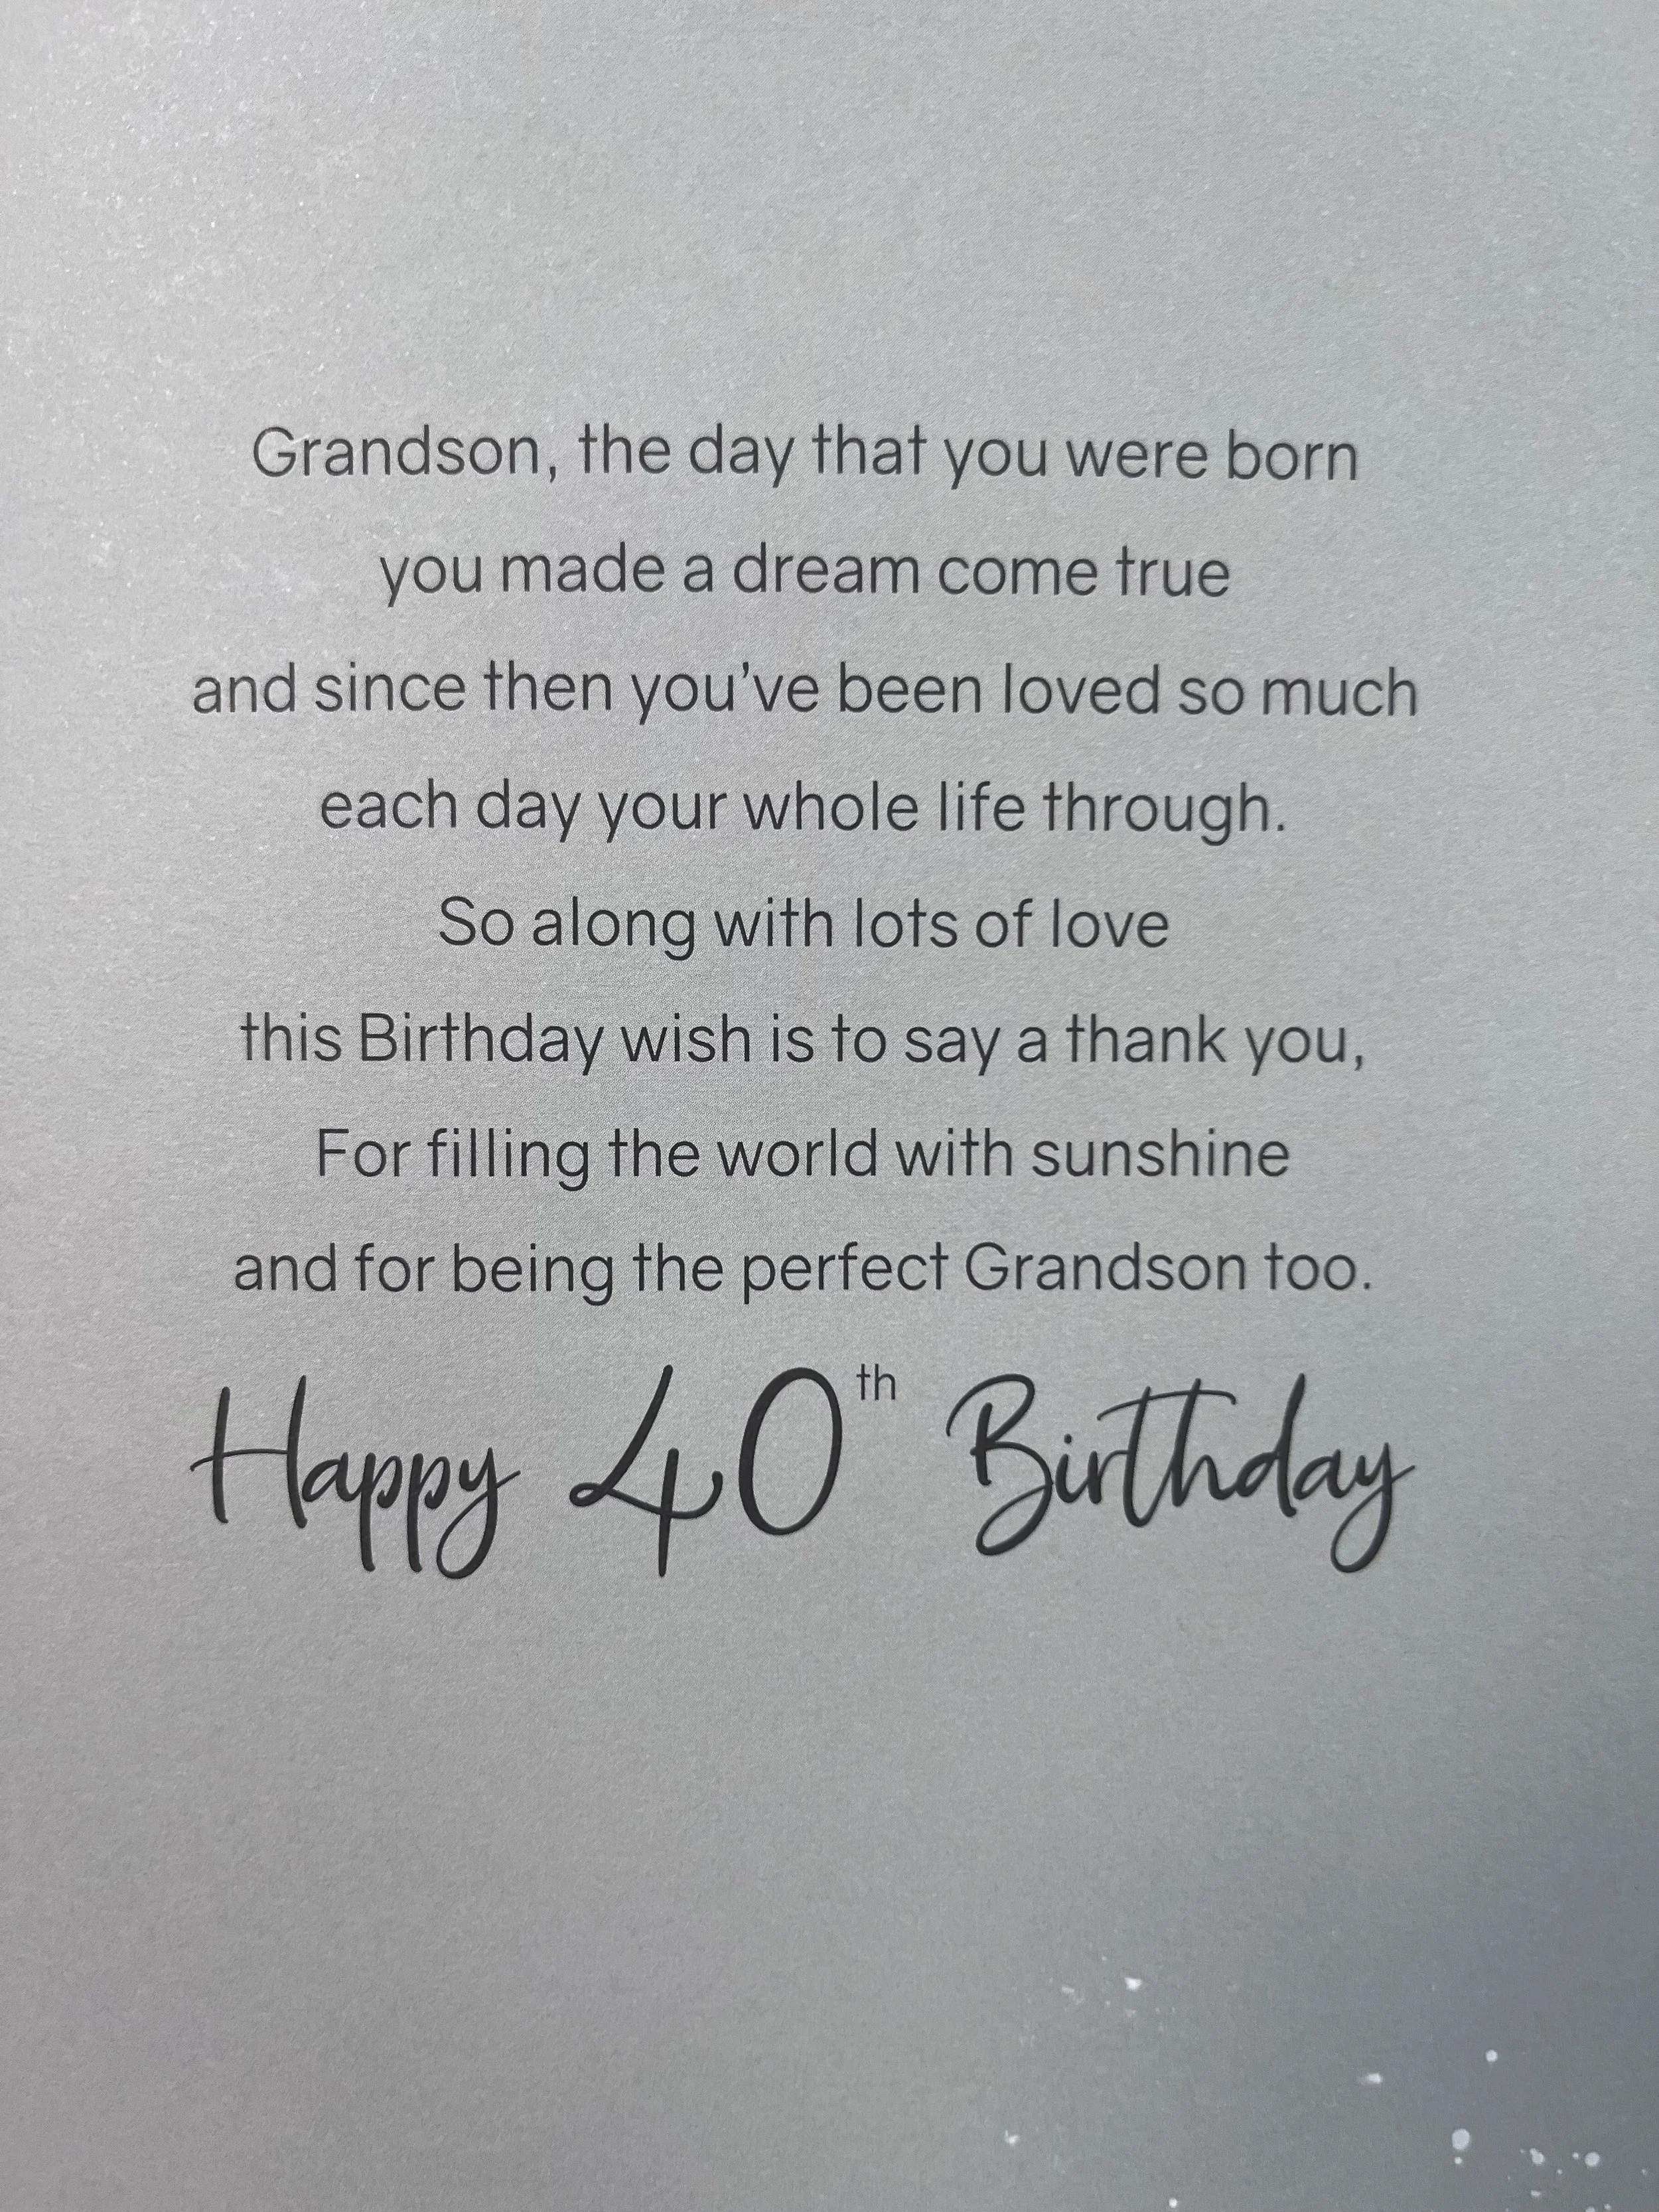 Grandson, the day that you were born
you made a dream come true
and since then you’ve been loved so much
each day your whole life through.
So along with lots of love
this Birthday wish is to say a thank you,
For filling the world with sunshine
and for being the perfect Grandson too.
Happy 40th Birthday